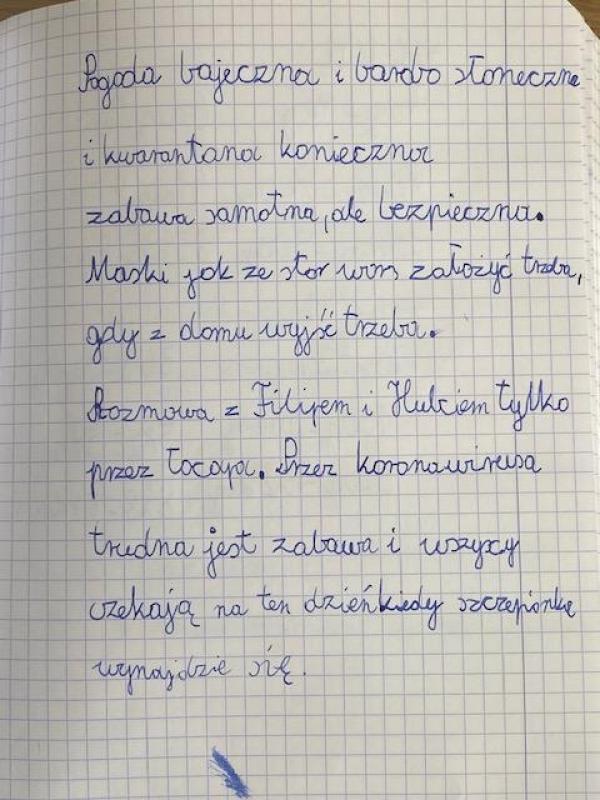 Pogoda bajeczna i bardo słoneczna
i kwarantana konieczna
zabawa samotna, ale bezpieczna.
Maski jak ze star wors założyć trzeba,
gdy z domu wyjść trzeba.
Rozmowa z Filipem i Hubciem tylko
przez łocapa. Przez koronawirusa
trudna jest zabawa i wszyscy
czekają na ten dzień kiedy szczepionkę
wynajdzie się.